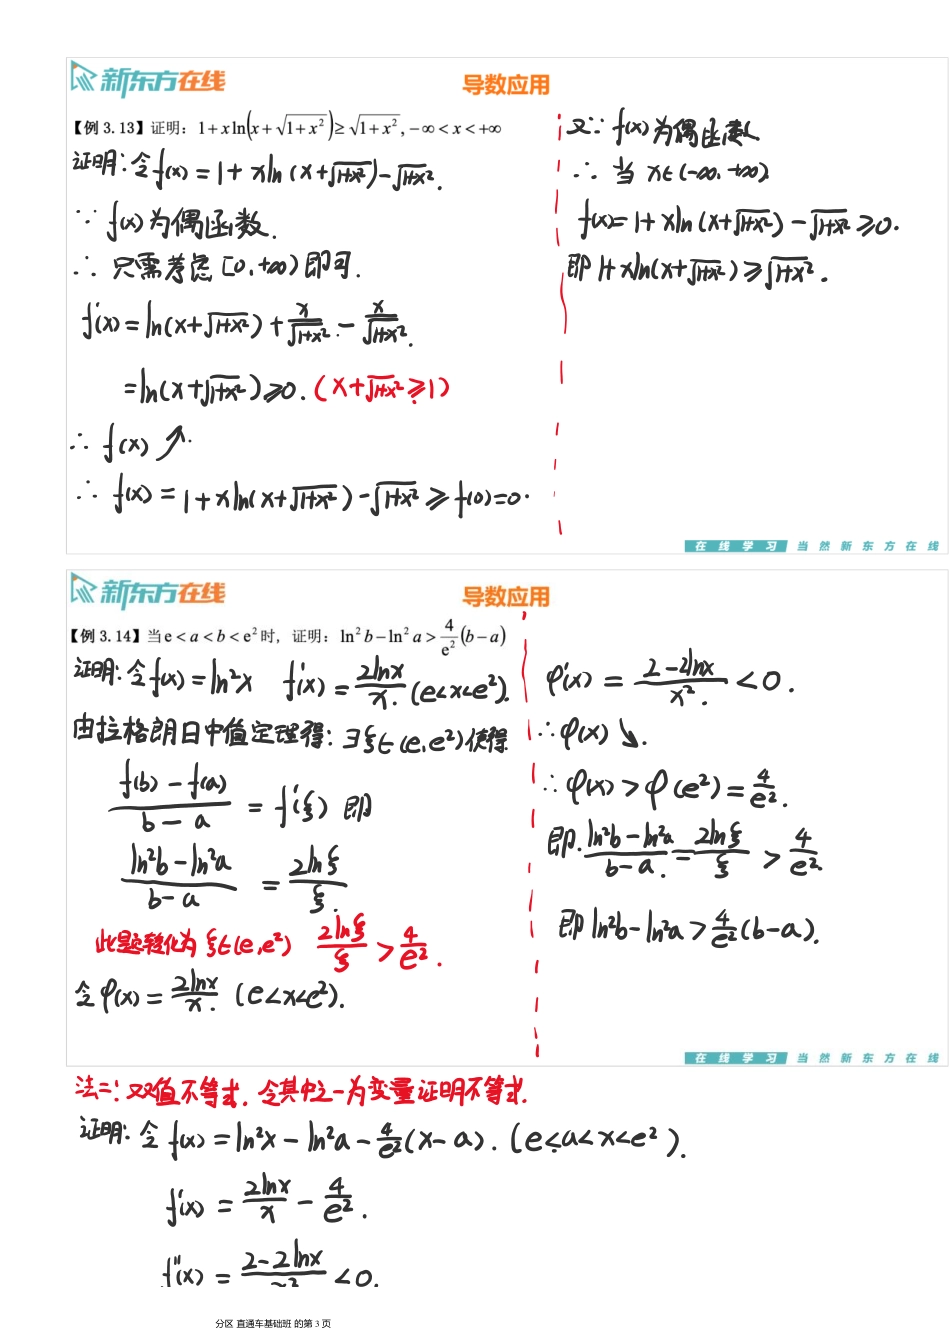 新东方在线
导数应用
【例 3.13】证明：1+xln(x+√(1+x²))≥√(1+x²),-∞<x<+∞
证明:令f(x)=1+xln(x+√(1+x²))-√(1+x²).
∵f(x)为偶函数.
∴ 只需考虑[0.+∞)即可.
f'(x)=ln(x+√(1+x²))+x/√(1+x²)-x/√(1+x²).
=ln(x+√(1+x²))≥0.(x+√(1+x²)≥1)
∴ f(x)↗.
∴ f(x)=1+xln(x+√(1+x²))-√(1+x²)≥f(0)=0.
又∵f(x)为偶函数
∴ 当 x∈(-∞.+∞)
f(x)=1+xln(x+√(1+x²))-√(1+x²)≥0.
即 1+xln(x+√(1+x²))≥√(1+x²).
在线学习 当然新东方在线
新东方在线
导数应用
【例 3.14】当e<a<b<e²时，证明：ln²b-ln²a>4/e²(b-a)
证明:令f(x)=ln²x f'(x)=2lnx/x.(e<x<e²).
由拉格朗日中值定理得:∃ξ∈(e,e²)使得
(f(b)-f(a))/(b-a)=f'(ξ) 即
(ln²b-ln²a)/(b-a)=2lnξ/ξ.
此题转化为 ξ∈(e,e²) 2lnξ/ξ>4/e².
令φ(x)=2lnx/x.(e<x<e²).
φ'(x)=(2-2lnx)/x².<0.
∴φ(x)↘.
∴φ(x)>φ(e²)=4/e².
即.(ln²b-ln²a)/(b-a).=2lnξ/ξ>4/e²
即ln²b-ln²a>4/e²(b-a).
在线学习 当然新东方在线
法二:双值不等式.令其中之一为变量证明不等式.
证明:令 f(x)=ln²x-ln²a-4/e²(x-a).(e<a<x<e²).
f'(x)=2lnx/x-4/e².
f''(x)=(2-2lnx)/x²<0.
分区 直通车基础班 的第 3 页